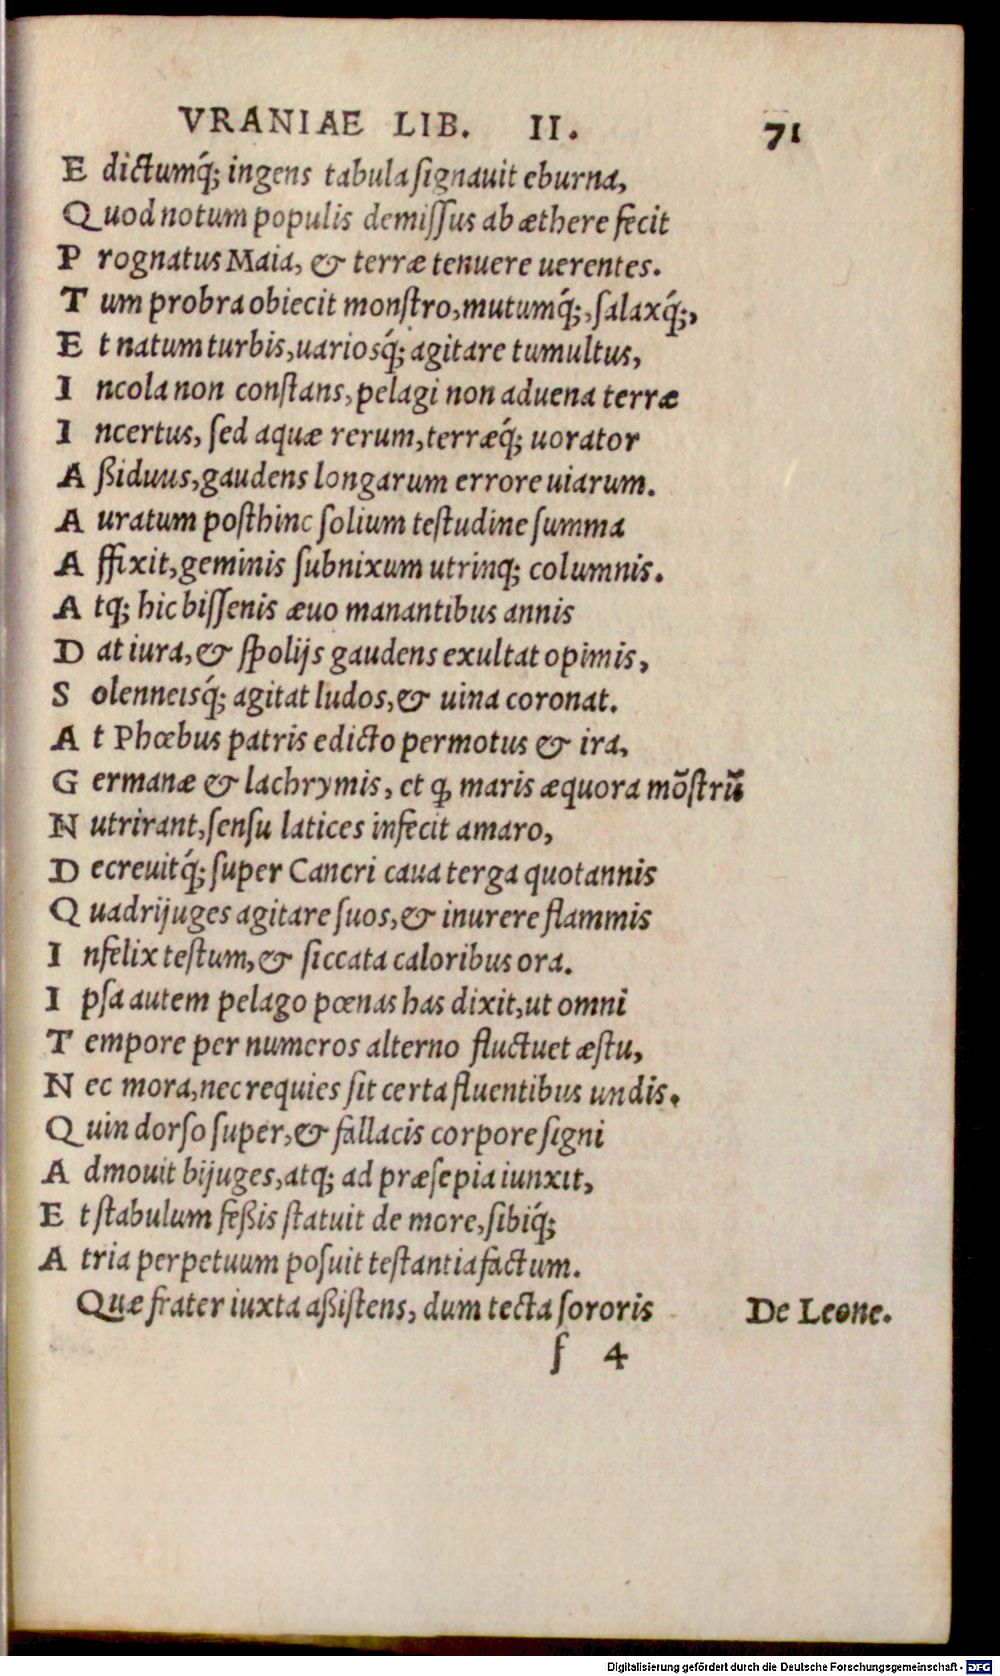 VRANIAE LIB. II. 71
E dictumq́; ingens tabula ſignauit eburna,
Q uod notum populis demiſſus ab æthere fecit
P rognatus Maia, & terræ tenuere uerentes.
T um probra obiecit monſtro, mutumq́;, ſalaxq́;,
E t natum turbis, uariosq́; agitare tumultus,
I ncola non conſtans, pelagi non aduena terræ
I ncertus, ſed aquæ rerum, terræq́; uorator
A ßiduus, gaudens longarum errore uiarum.
A uratum poſthinc ſolium teſtudine ſumma
A ffixit, geminis ſubnixum utrinq; columnis.
A tq; hic biſſenis æuo manantibus annis
D at iura, & ſpolijs gaudens exultat opimis,
S olenneisq́; agitat ludos, & uina coronat.
A t Phœbus patris edicto permotus & ira,
G ermanæ & lachrymis, et ꝙ maris æquora mõſtrũ
N utrirant, ſenſu latices infecit amaro,
D ecreuitq́; ſuper Cancri caua terga quotannis
Q uadrijuges agitare ſuos, & inurere flammis
I nfelix teſtum, & ſiccata caloribus ora.
I pſa autem pelago pœnas has dixit, ut omni
T empore per numeros alterno fluctuet æſtu,
N ec mora, nec requies ſit certa fluentibus undis.
Q uin dorſo ſuper, & fallacis corpore ſigni
A dmouit bijuges, atq; ad præſepia iunxit,
E t ſtabulum feßis ſtatuit de more, ſibiq́;
A tria perpetuum poſuit teſtantia factum.
Quæ frater iuxta aßiſtens, dum tecta ſororis De Leone.
ſ 4
Digitalisierung gefördert durch die Deutsche Forschungsgemeinschaft - DFG